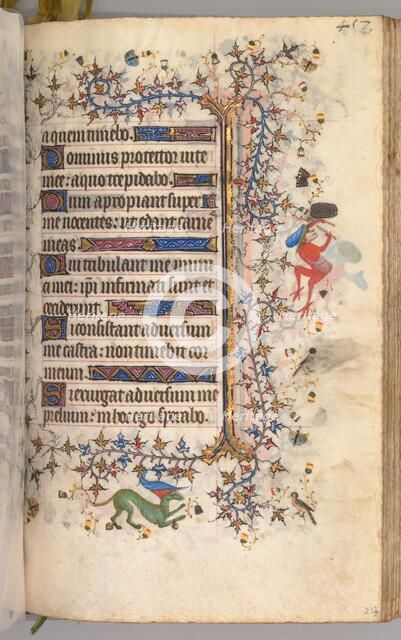 457
a quem timebo.
Dominus protector vite
mee: a quo trepidabo.
Dum apropiant super
me nocentes: ut edant carnes
meas.
Qui tribulant me inimi
ci mei: ipi infirmati sunt et
ceciderunt.
Si consistant adversum
me castra: non timebit cor
meum.
Si exurgat adversum me
prelium: in hoc ego sperabo.
Heritage